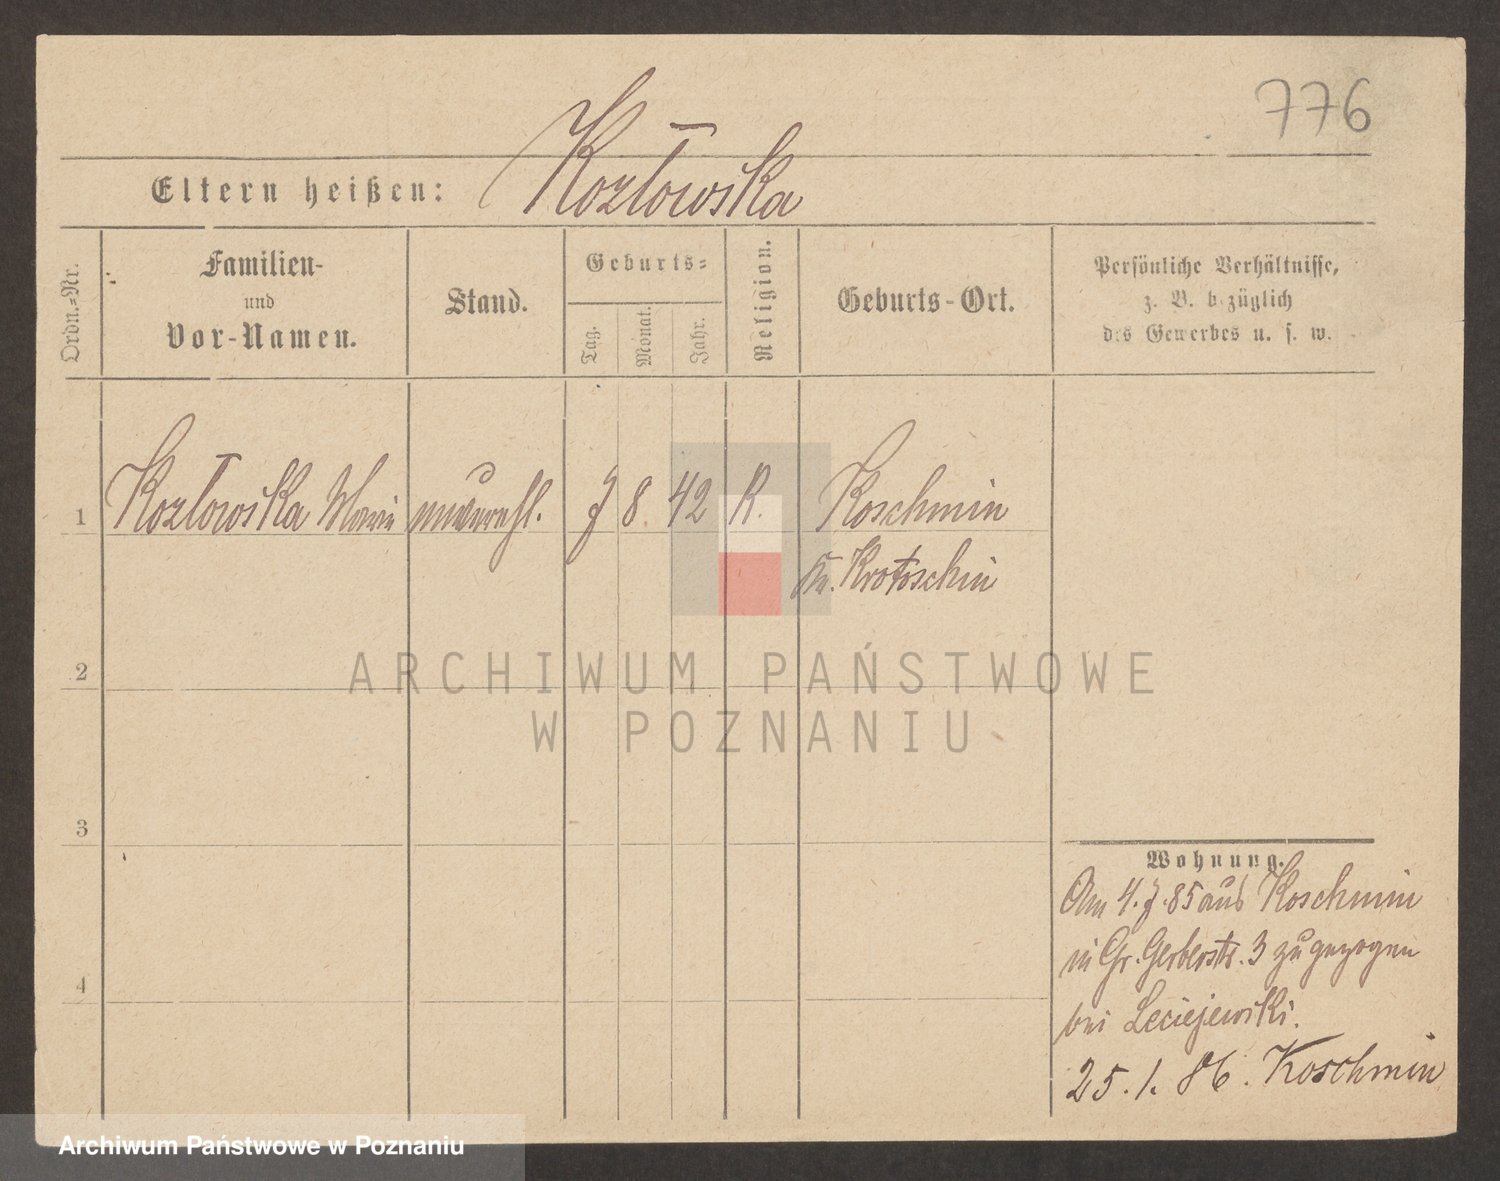 776
Kozłowska
Eltern heißen:
Ordn.=Nr.
Familien-
und
Vor-Namen.
Stand.
Geburts=
Tag.
Monat.
Jahr.
Religion.
Geburts-Ort.
Persönliche Verhältnisse,
z. B. bezüglich
des Gewerbes u. s. w.
1 Kozłowska Marie unverehl. 7 8. 42 R. Koschmin
Kr. Krotoschin
2
3
4
Wohnung.
Am 4. 7. 85 aus Koschmin
in Gr. Gerberstr. 3 zugezogen
bei Leciejewski.
25. 1. 86. Koschmin
ARCHIWUM PAŃSTWOWE
W POZNANIU
Archiwum Państwowe w Poznaniu